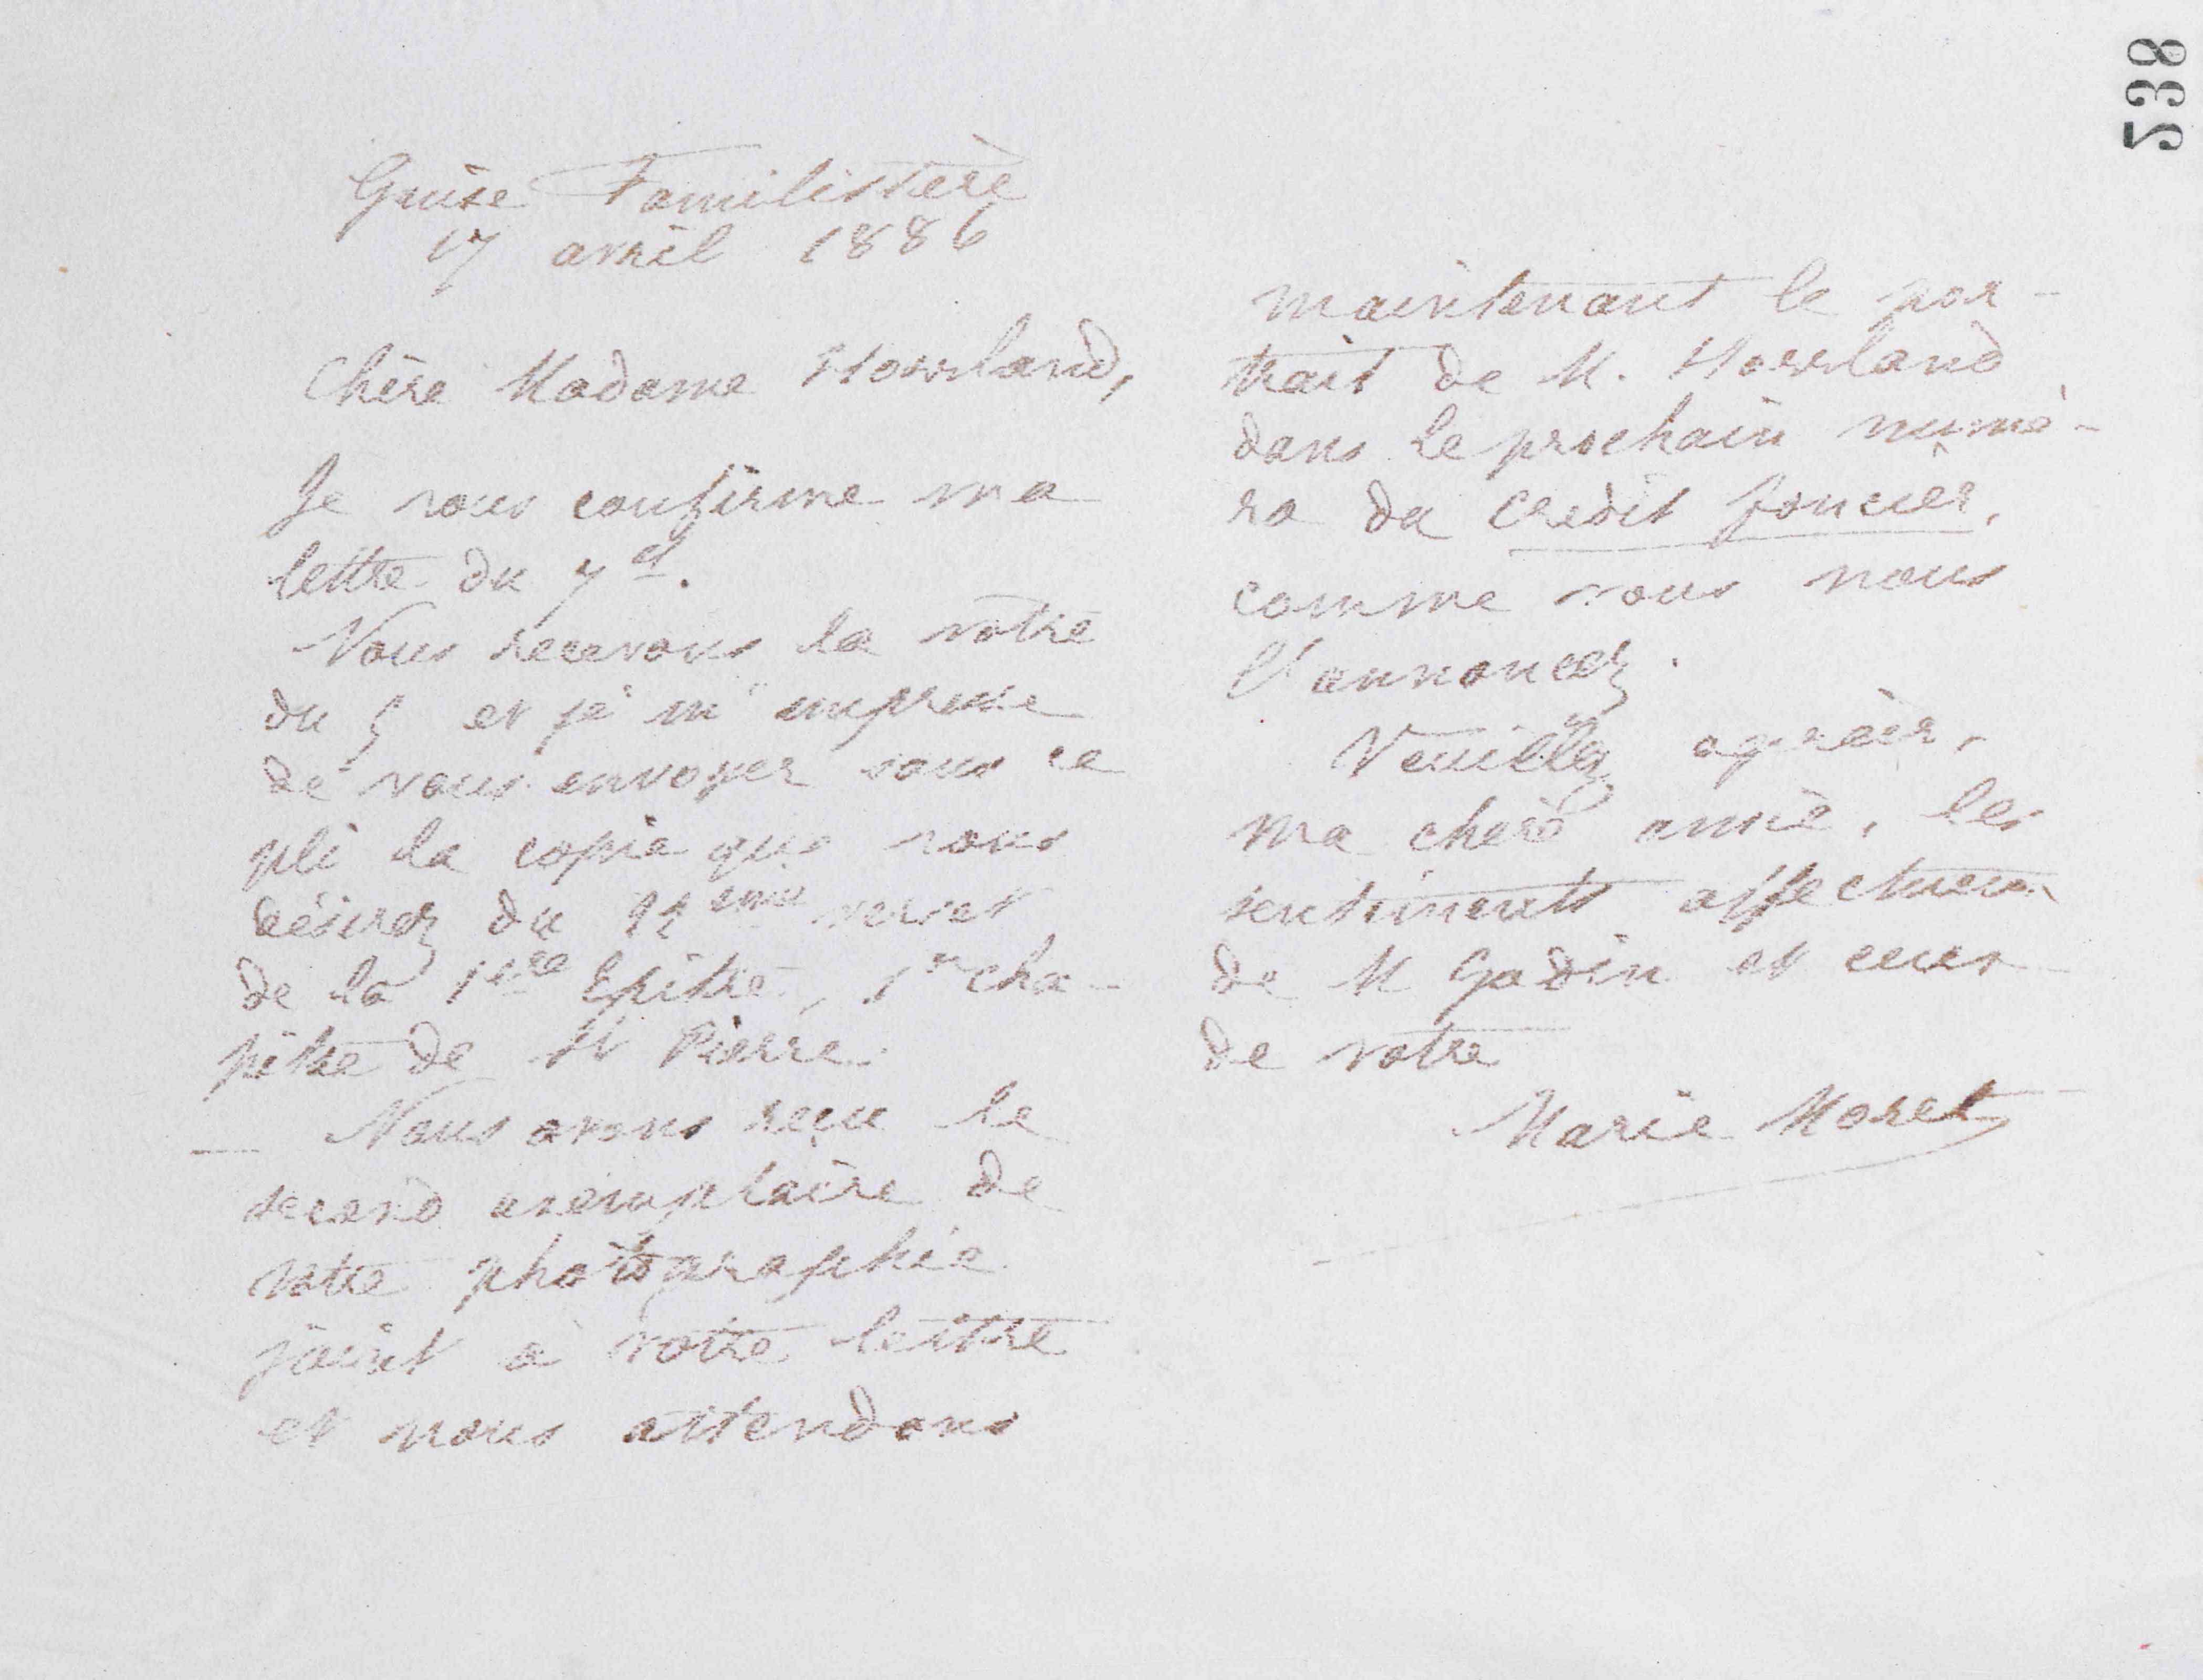 538
Guise Familistère
17 avril 1886
Chère Madame Howland,
Je vous confirme ma
lettre du 7 ct.
Nous recevons la votre
du 5 et je m'empresse
de vous envoyer sous ce
pli la copie que vous
désirez du verset
de la 1ère Epitre, 1er cha-
pitre de St Pierre.
— Nous avons reçu le
second exemplaire de
votre photographie
joint à votre lettre
et nous attendons
maintenant le por-
trait de M. Howland
dans le prochain numé-
ro du Crédit foncier,
comme vous nous
l'annoncez.
Veuillez agréer,
ma chère amie, les
sentiments affectueux
de M Godin et ceux
de votre
Marie Moret